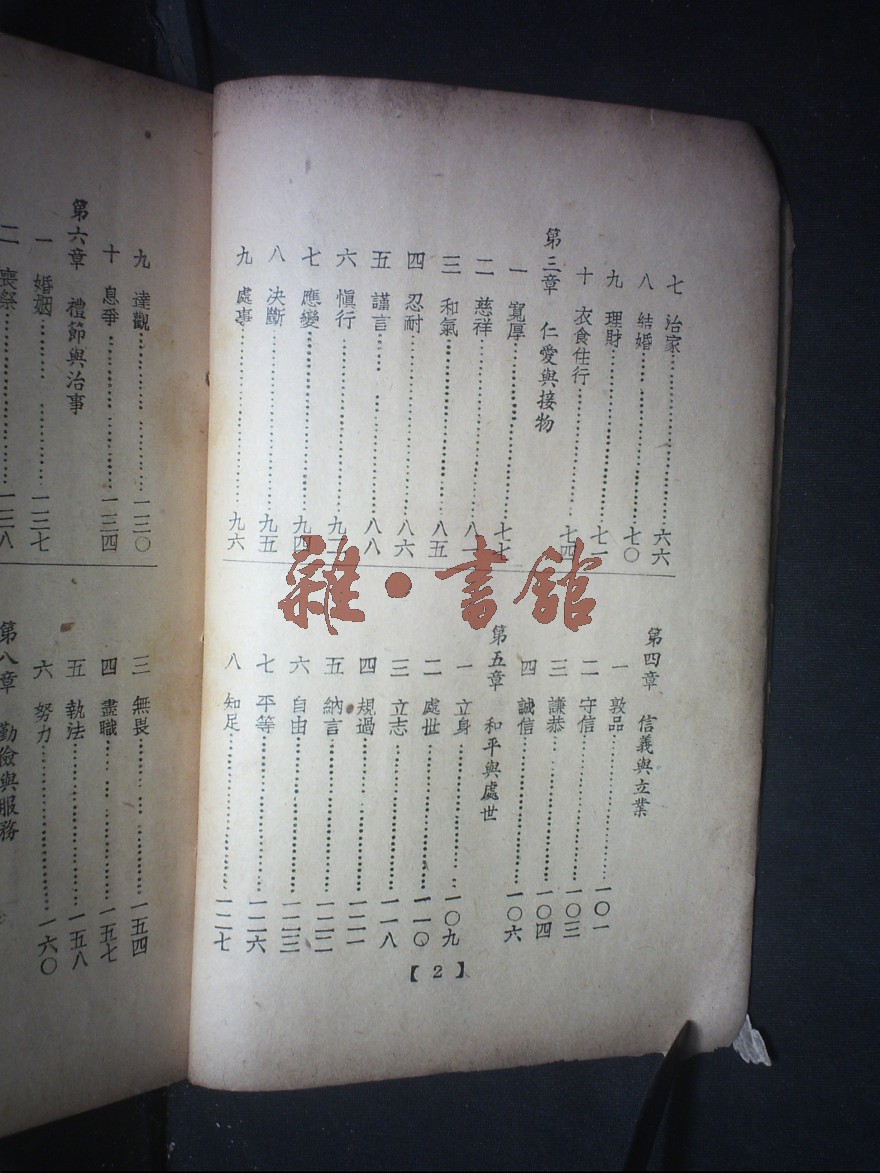 七 治家……六六
八 結婚……七〇
九 理財……七一
十 衣食住行……七四
第三章 仁愛與接物
一 寬厚……七七
二 慈祥……
三 和氣……八五
四 忍耐……八六
五 謹言……八八
六 慎行……
七 應變……九四
八 決斷……九五
九 處事……九六
第四章 信義與立業
一 敦品……一〇一
二 守信……一〇三
三 謙恭……一〇四
四 誠信……一〇六
第五章 和平與處世
一 立身……一〇九
二 處世……一一〇
三 立志……一一八
四 規過……一二一
五 納言……一二二
六 自由……一二三
七 平等……一二六
八 知足……一二七
【2】
九 達觀……一三〇
十 息爭……一三四
第六章 禮節與治事
一 婚姻……一三七
二 喪祭……一三八
三 無畏……一五四
四 盡職……一五七
五 執法……一五八
六 努力……一六〇
第八章 勤儉與服務
雜·書館